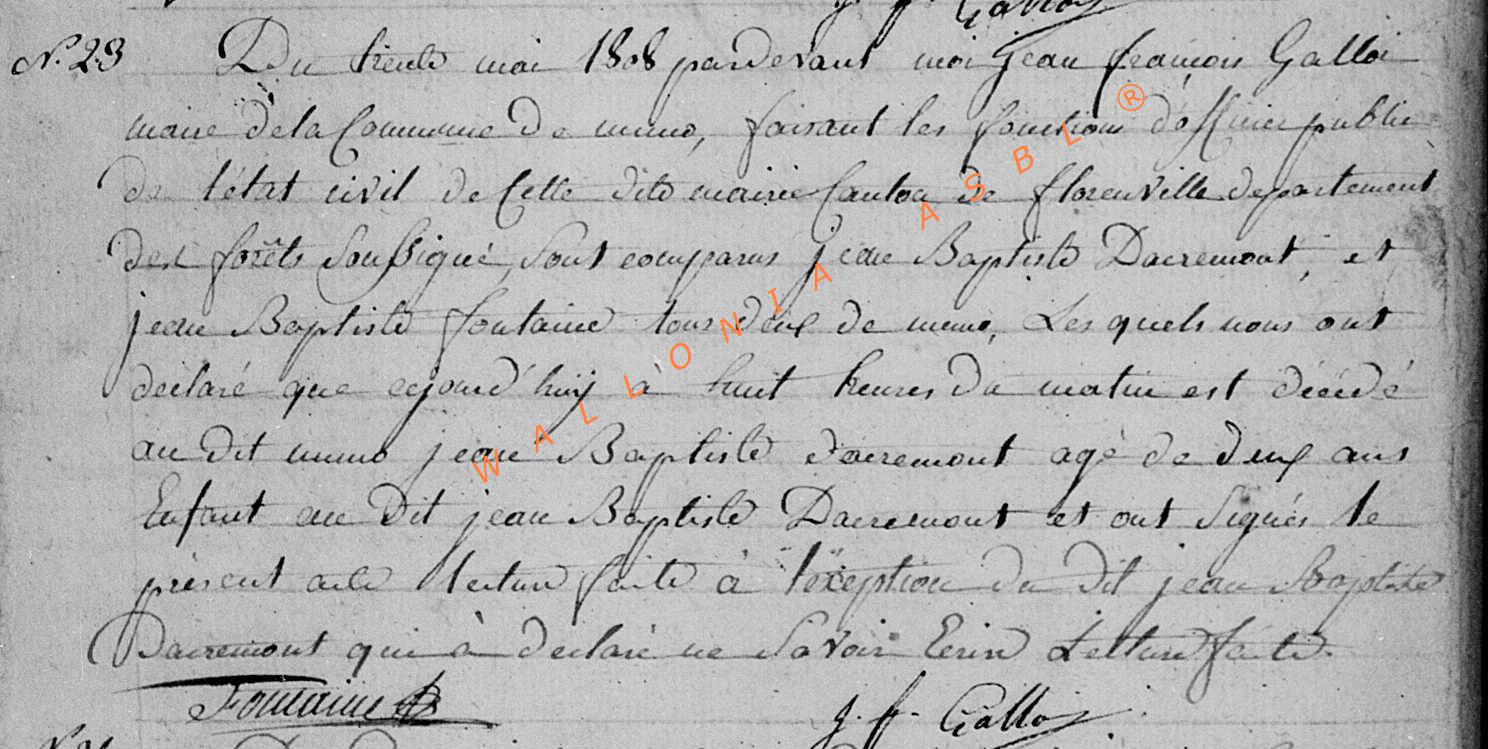 J. f. Gallo
N. 23 Du trente mai 1808 pardevant moi jean françois Galloi
maire dela Commune De muno, faisant les fonctions d'officier public
de l'état civil de Cette dite mairie Canton de florenville departement
des forêts Soussigné, Sont comparus jean Baptiste Dacremont, et
jean Baptiste fontaine tous deux de muno, Les quels nous ont
déclaré que cejourd'huy à huit heures du matin est décédé
au Dit muno jean Baptiste dacremont agé de deux ans
Enfant au Dit jean Baptiste Dacremont et ont Signés le
présent acte lecture faite à l'exception du dit jean Baptiste
Dacremont qui à déclaré ne Savoir Ecrire Lecture faite.
Fontaine J. f. Gallo
WALLONIA ASBL ®